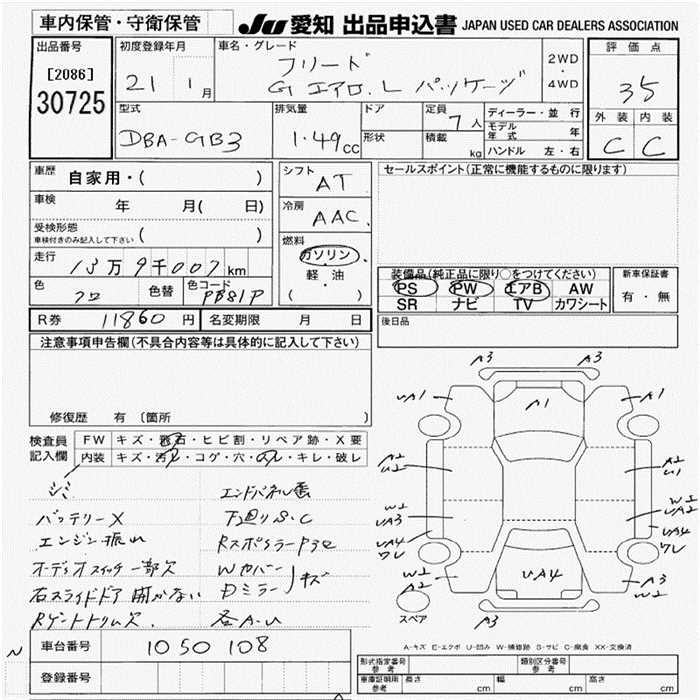 車内保管・守衛保管
JU 愛知 出品申込書 JAPAN USED CAR DEALERS ASSOCIATION
出品番号
[2086]
30725
初度登録年月
21 1月
車名・グレード
フリード
G エアロ.L パッケージ
2WD
・
4WD
評価点
35
外装 内装
C C
型式
DBA-GB3
排気量
1.49cc
ドア
形状
定員
7人
積載
kg
ディーラー・並行
モデル年式 年
ハンドル 左・右
車歴
自家用・( )
車検
年 月( 日)
受検形態
車検付きのみ記入して下さい ( )
走行
13万9千007km
色
クロ
色替
色コード
PB81P
シフト
AT
冷房
AAC
燃料
ガソリン
・
軽・油
( )
セールスポイント(正常に機能するものに限ります)
装備品(純正品に限り○をつけてください)
PS PW エアB AW
SR ナビ TV カワシート
新車保証書
有・無
R券 11860円
名変期限 月 日
後日品
注意事項申告欄(不具合内容等は具体的に記入して下さい)
修復歴 有〔箇所 〕
検査員
記入欄
FW キズ・飛石・ヒビ割・リペア跡・X要
内装 キズ・汚レ・コゲ・穴・のレ・キレ・破レ
シミ
バッテリーX
エンジン振れ
オーディオスイッチ一部欠
右スライドドア 開かない
Rゲートトリム欠
下廻りS.C
Wカバー
Dミラー
キズ
各A.U
A3 A3
UA1 A1 A1
A2
U2
A2
U1
W2
UA3
W2
UA2
UA4
ワレ
UA4
ワレ
W2
A2
UA4
A3
W2
スペア
A3
A-キズ E-エクボ U-凹み W-補修跡 S-サビ C-腐食 XX-交換済
N
車台番号 1050108
登録番号
形式指定番号
参考
類別区分番号
参考
車庫証明用
参考
長さ cm 幅 cm 高さ cm